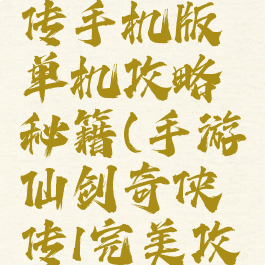 传手机版
单机攻略
秘籍(手游
仙剑奇侠
传1完美攻